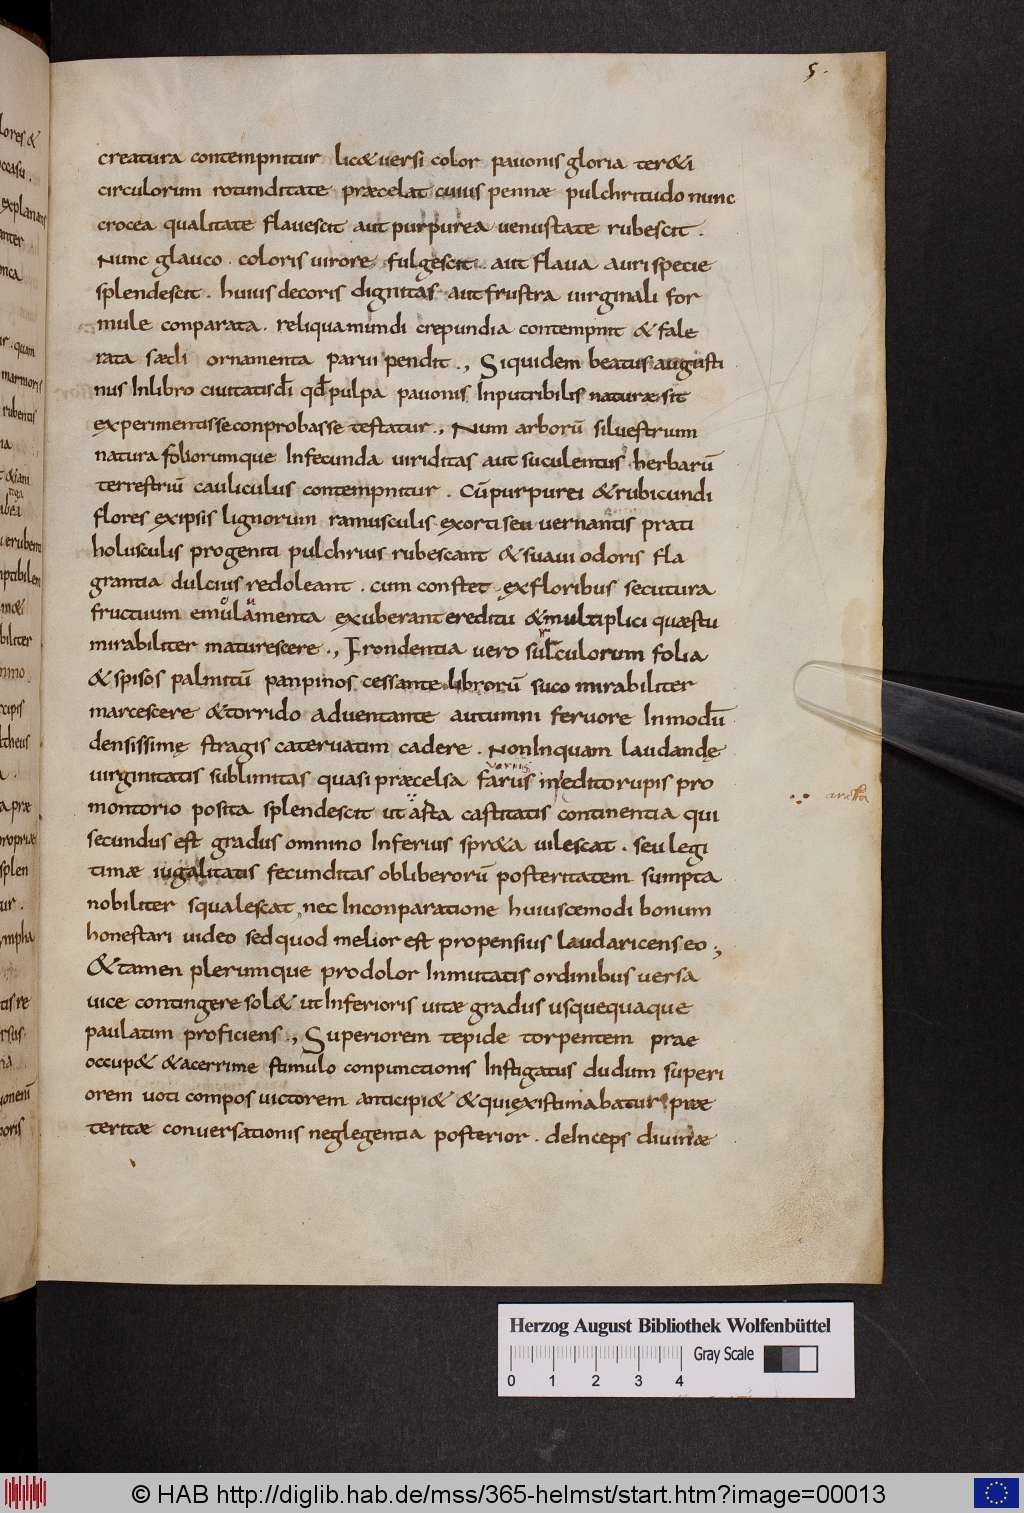 5.
creatura contempnitur lic&versi color pavonis gloria ter&i
circulorum rotunditate præcelat cuius pennæ pulchritudo nunc
crocea qualitate flavescit aut purpurea venustate rubescit.
Nunc glauco. coloris virore fulgescit. aut flava auri specie
splendescit. huius decoris dignitas aut frustra virginali for
mule conparata. reliqua mundi crepundia contempnit & fale
rata sæcli ornamenta parvi pendit., Siquidem beatus augusti
nus Inlibro civitatis dī qđ pulpa pavonis Inputribilis naturæ sit
experimentis se conprobasse testatur., Num arborū silvestrium
natura foliorumque Infecunda viriditas aut suculentus herbarū
terrestriū cauliculus contempnitur. Cū purpurei & rubicundi
flores exipsis lignorum ramusculis exorti seu vernantis prati
holusculis progenti pulchrius rubescant & suavi odoris fla
grantia dulcius redoleant. cum constet exfloribus secutura
fructuum emulamenta exuberant ereditu & multiplici quæstu
mirabiliter maturescere., Frondentia vero sulculorum folia
& spisos palmitū panpinos cessante librorū suco mirabiliter
marcescere & torrido adventante autumni fervore Inmodū
densissimę stragis catervatim cadere. Non Inquam laudandę
virginitatis sublimitas quasi præcelsa farus in editorupis pro
montorio posita splendescit ut asta castitatis continentia qui
secundus est gradus omnino Inferius spr&a vilescat. seu legi
timæ iugalitatis fecunditas obliberorū posteritatem sumpta
nobiliter squalescat, nec Inconparatione huiuscemodi bonum
honestari video sed quod melior est propensius laudari censeo;
& tamen plerumque prodolor Inmutatis ordinibus versa
vice contingere sol& ut Inferioris vitæ gradus usquequaque
paulatim proficiens., Superiorem tepide torpentem prae
occup& & acerrime stimulo conpunctionis Instigatus dudum superi
orem voti compos victorem anticipi& & qui existimabatur præ
teritæ conversationis neglegentia posterior. deInceps divinæ
Herzog August Bibliothek Wolfenbüttel
Gray Scale
0 1 2 3 4
© HAB http://diglib.hab.de/mss/365-helmst/start.htm?image=00013